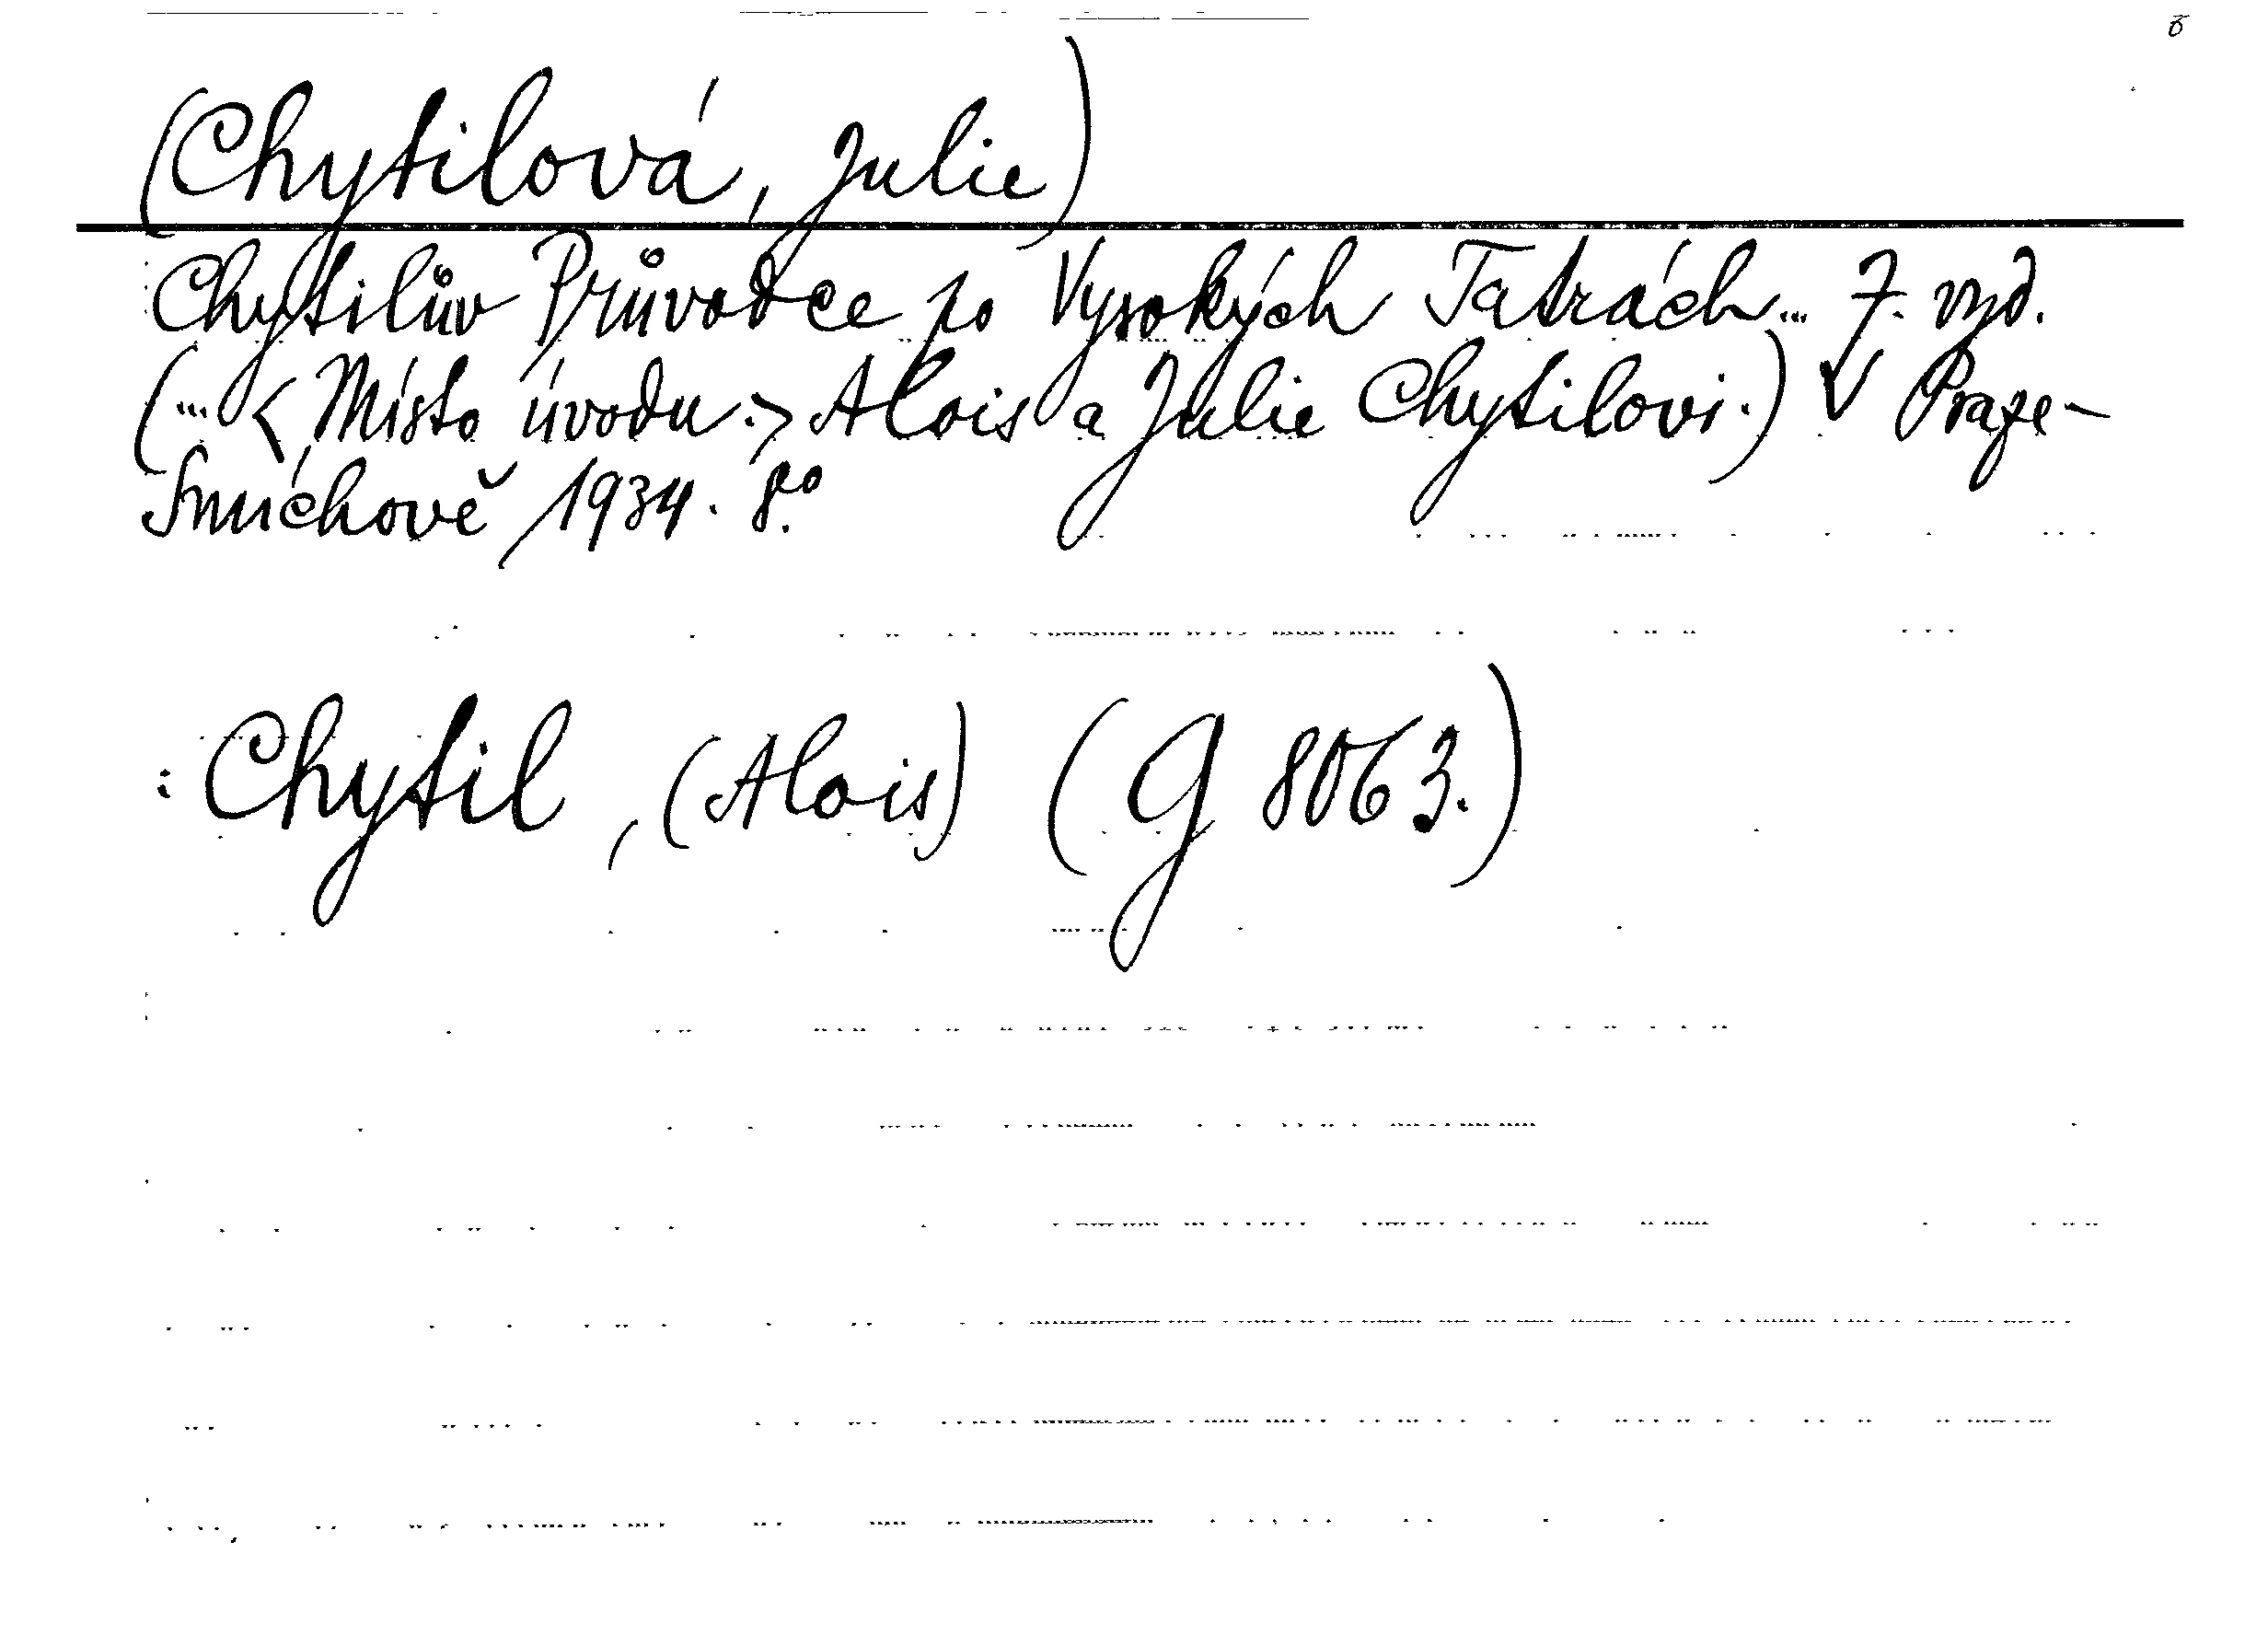 (Chytilová, Julie)
Chytilův Průvodce po Vysokých Tatrách... 7. vyd.
(... <Místo úvodu.> Alois a Julie Chytilovi.) V Praze-
Smíchově 1934. 8o.
: Chytil, (Alois) (G 8063.)